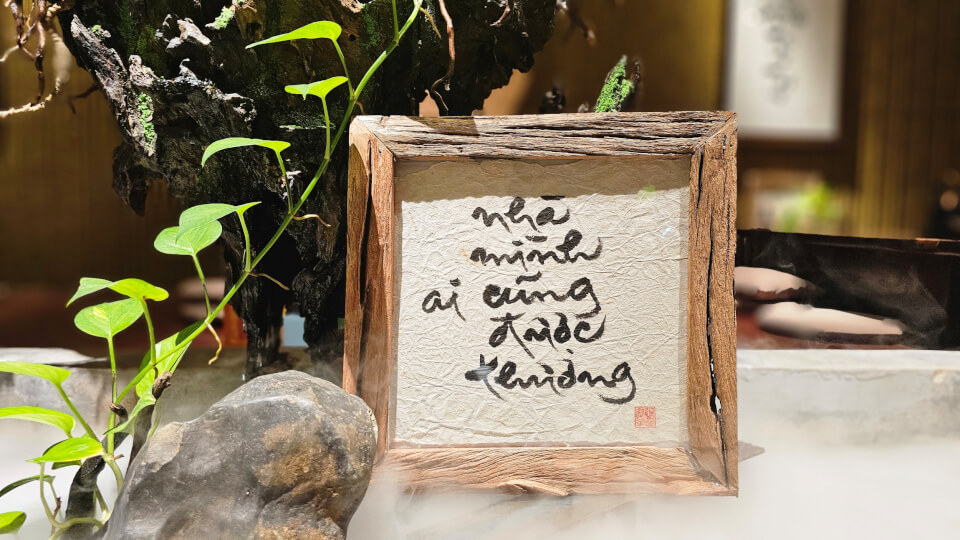 nhà
mình
ai cũng
được
thương